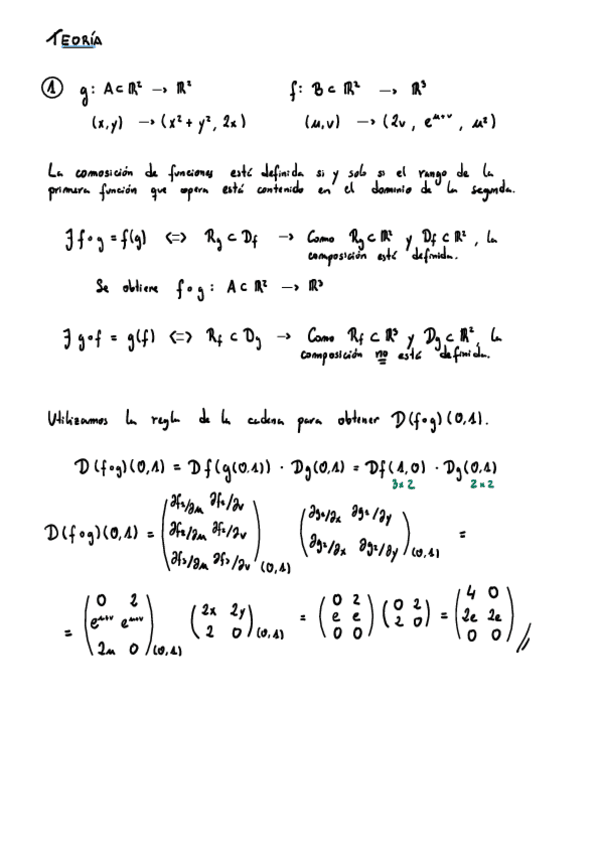 TEORÍA
① g: A ⊂ ℝ² → ℝ² f: B ⊂ ℝ² → ℝ³
(x,y) → (x² + y², 2x) (u,v) → (2v, e^(u+v), u²)
La comosición de funciones está definida si y solo si el rango de la
primera función que opera está contenido en el dominio de la segunda.
∃ f∘g = f(g) <=> Rg ⊂ Df → Como Rg ⊂ ℝ² y Df ⊂ ℝ², la
composición está definida.
Se obtiene f∘g: A ⊂ ℝ² → ℝ³
∃ g∘f = g(f) <=> Rf ⊂ Dg → Como Rf ⊂ ℝ³ y Dg ⊂ ℝ², la
composición no está definida.
Utilizamos la regla de la cadena para obtener D(f∘g)(0,1).
D(f∘g)(0,1) = Df(g(0,1)) · Dg(0,1) = Df(1,0) · Dg(0,1)
3x2 2x2
∂f₁/∂u ∂f₁/∂v
D(f∘g)(0,1) = ( ∂f₂/∂u ∂f₂/∂v ) ( ∂g₁/∂x ∂g₁/∂y ) =
∂f₃/∂u ∂f₃/∂v (0,1) ∂g₂/∂x ∂g₂/∂y (0,1)
0 2 2x 2y 0 2 0 2 4 0
= ( e^(u+v) e^(u+v) ) ( ) = ( e e ) ( ) = ( 2e 2e ) //
2u 0 (0,1) 2 0 (0,1) 0 0 2 0 0 0